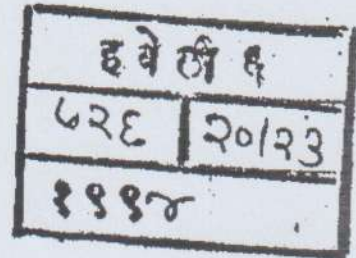 हवेली ६
७२६ २०/२३
१९९४